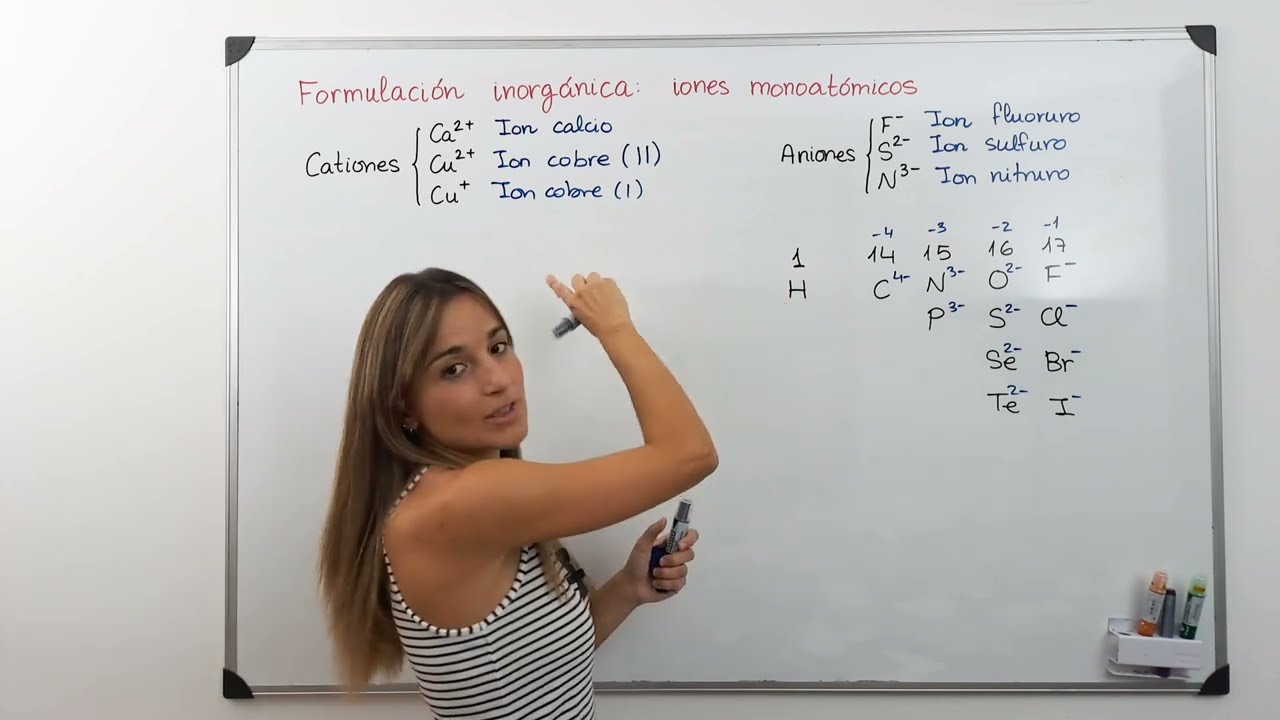 Formulación inorgánica: iones monoatómicos
Cationes
Ca²⁺ Ion calcio
Cu²⁺ Ion cobre (II)
Cu⁺ Ion cobre (I)
Aniones
F⁻ Ion fluoruro
S²⁻ Ion sulfuro
N³⁻ Ion nitruro
-4 -3 -2 -1
1 14 15 16 17
H C⁴⁻ N³⁻ O²⁻ F⁻
P³⁻ S²⁻ Cl⁻
Se²⁻ Br⁻
Te²⁻ I⁻